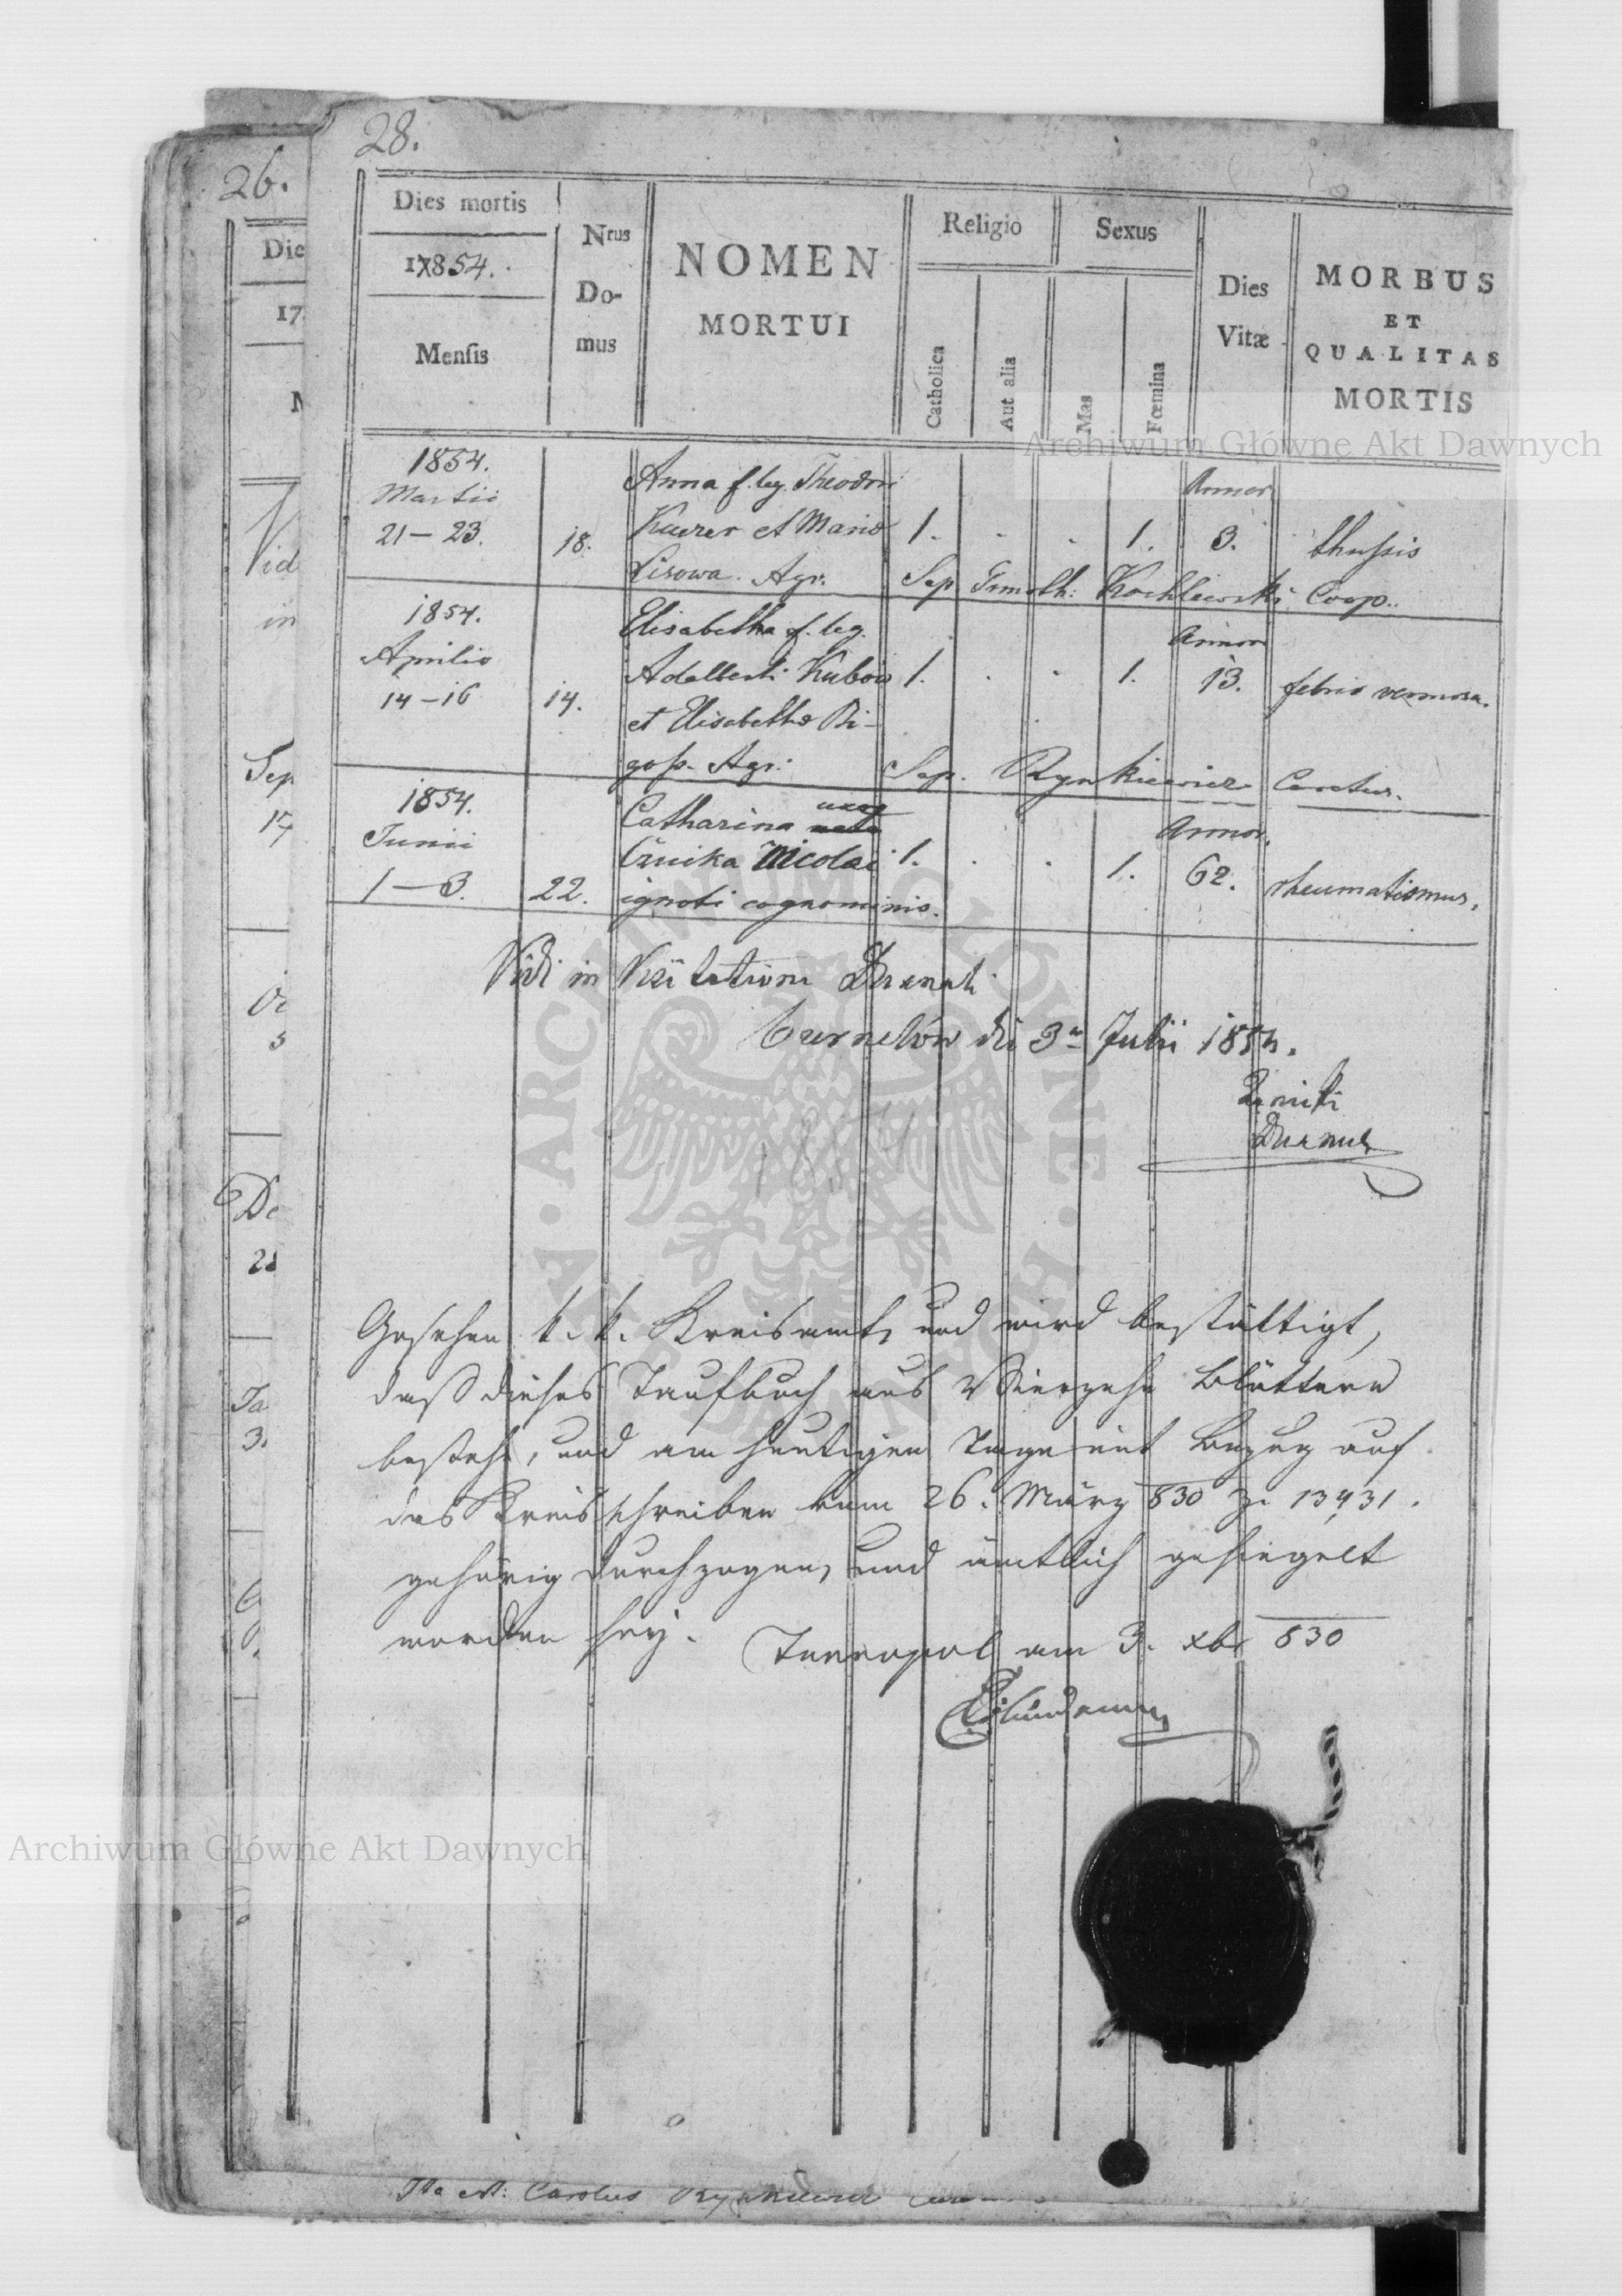 28.
26.
Dies mortis
17854.
Mensis
Nrus
Do-
mus
NOMEN
MORTUI
Religio
Catholica
Aut alia
Sexus
Mas
Fœmina
Dies
Vitæ
MORBUS
ET
QUALITAS
MORTIS
Die
17
Archiwum Główne Akt Dawnych
1854.
Martii
21 – 23.
18.
Anna f. leg. Theodori
et Maria
Lisowa. Agr.
1. . . 1.
Annor
3.
thussis
Sep. Timoth: Kochlewski Coop.
1854.
Aprilis
14 – 16
14.
Elisabetha f. leg.
Adalberti Kubow
et Elisabetha Bi-
gos. Agr.
1. . . 1.
Annor
13.
febris vermosa.
Sep. Rynkiewicz Curatus.
1854.
Junii
1 – 3.
22.
Catharina uxor
Nicolai
ignoti cognominis.
1. . . 1.
Annor.
62.
rheumatismus.
Vidi in Visitatione Decanali
die 3a Julii 1854.
Decanus
1854
Gesehen k. k. Kreisamt, und wird bestättigt,
daß dieses Taufbuch aus Vierzehn Blättern
bestehe, und am heutigen Tage mit Bezug auf
das Kreisschreiben vom 26. März 830 Z. 13431.
gehörig durchzogen, und ämtlich gesiegelt
worden sey.
Tarnopol am 3. xbr 830
Archiwum Główne Akt Dawnych
Vid
in
Sep
17
De
Ja
3.
Ita est: Carolus Rynkiewicz
ARCHIWUM GŁÓWNE AKT DAWNYCH